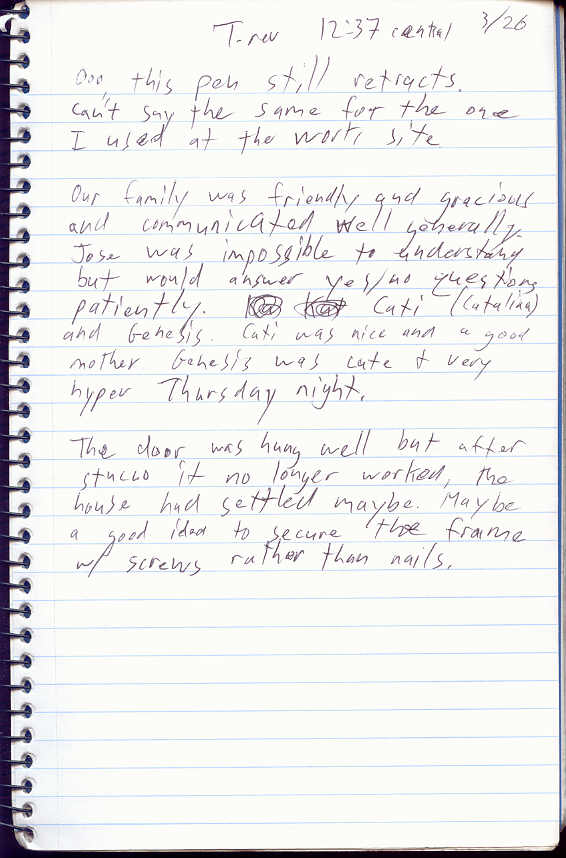 T-rev 12:37 central 3/26
Ooo, this pen still retracts.
Can't say the same for the one
I used at the work site
Our family was friendly and gracious
and communicated well generally.
Jose was impossible to understand
but would answer yes/no questions
patiently. Cati (Catalina)
and Genesis. Cati was nice and a good
mother Genesis was cute & very
hyper Thursday night.
The door was hung well but after
stucco it no longer worked, the
house had settled maybe. Maybe
a good idea to secure the frame
w/ screws rather than nails.